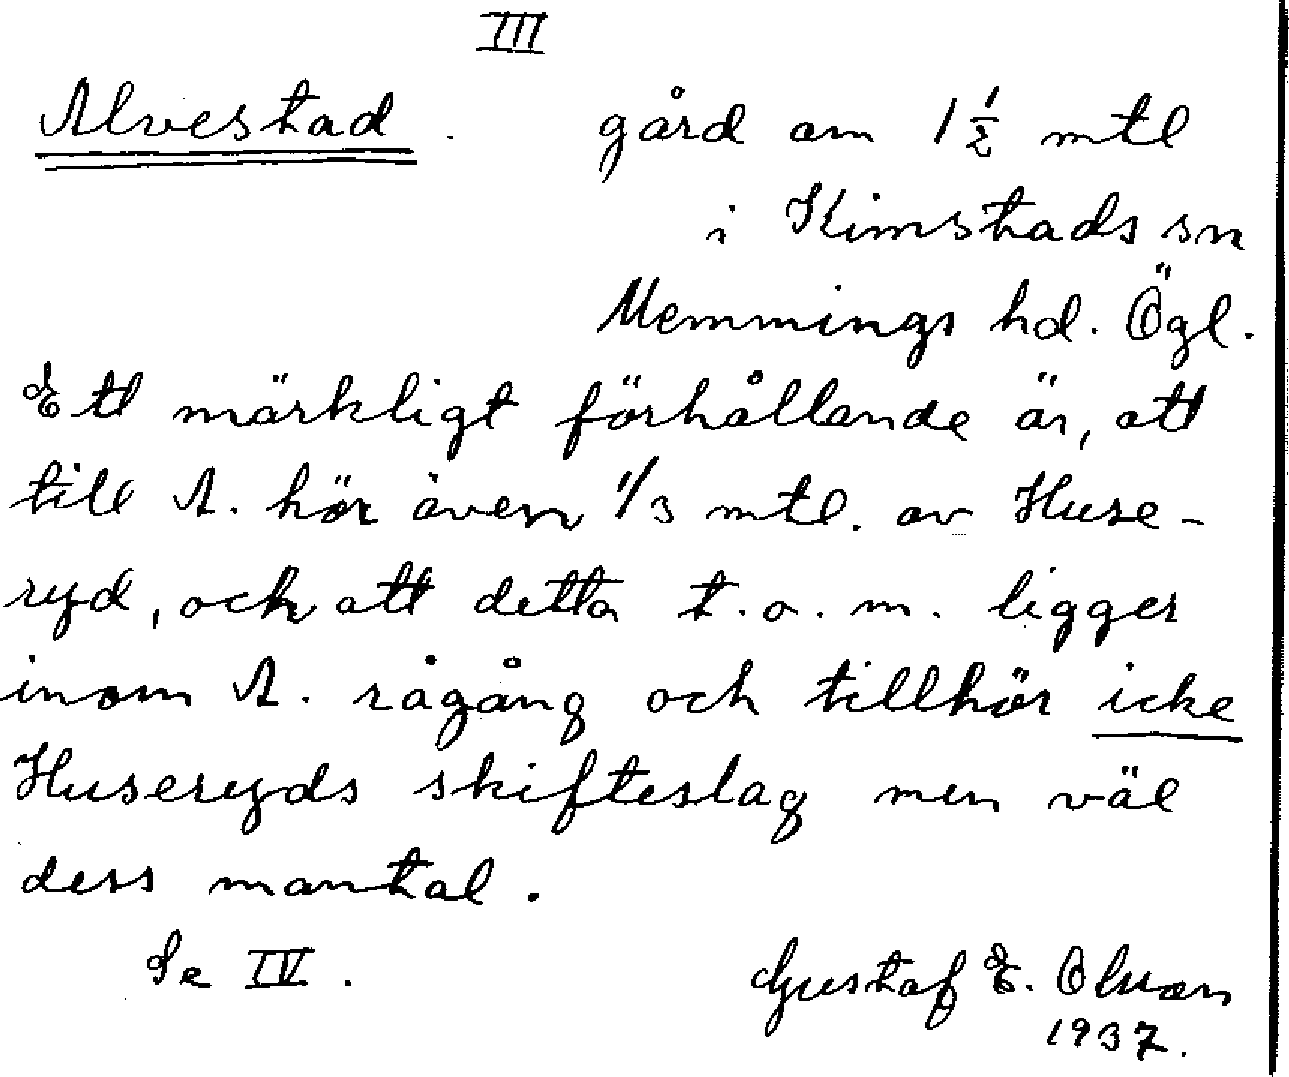 III
Alvestad . gård om 1 1/2 mtl
i Kimstads sn
Memmings hd. Ögl.
Ett märkligt förhållande är, att
till A. hör även 1/3 mtl. av Huse-
ryd, och att detta t.o.m. ligger
inom A. rågång och tillhör icke
Huseryds skifteslag men väl
dess mantal.
Se IV.
Gustaf E. Olsson
1937.